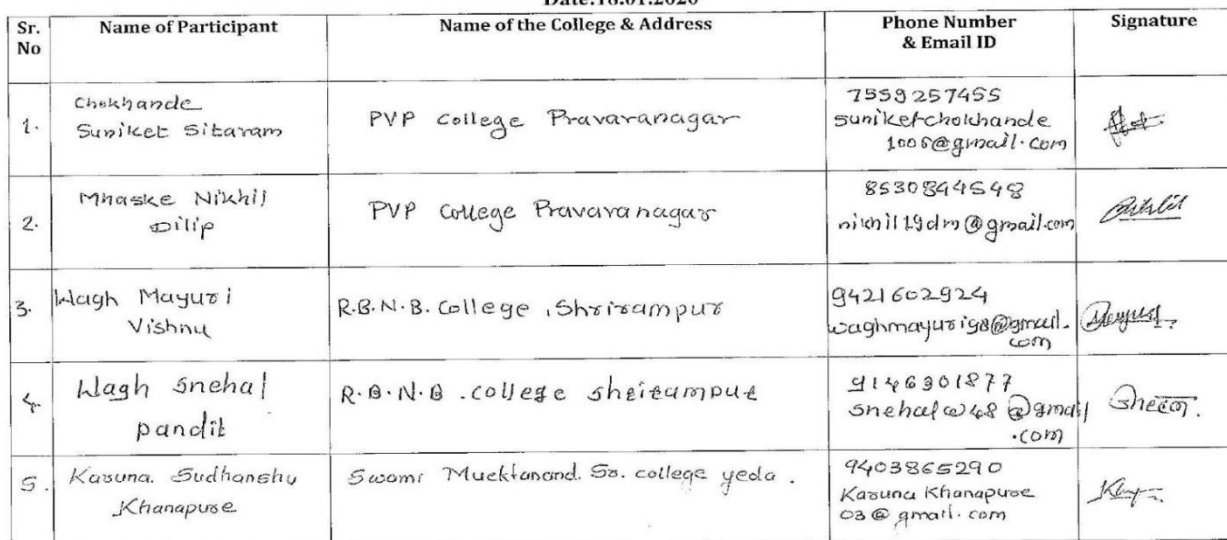 Date:18.01.2020
Sr. No
Name of Participant
Name of the College & Address
Phone Number & Email ID
Signature
1.
Chokhande
Suniket Sitaram
PVP College Pravaranagar
7559257455
suniketchokhande
1006@gmail.com
2.
Mhaske Nikhil
Dilip
PVP College Pravaranagar
8530844548
nikhil19dm@gmail.com
3.
Wagh Mayuri
Vishnu
R.B.N.B. College , Shrirampur
9421602924
waghmayuri98@gmail.
com
4.
Wagh Snehal
pandit
R.B.N.B. college shrirampur
9146301877
snehalw48@gmail
.com
स्नेहल.
5.
Karuna. Sudhanshu
Khanapure
Swami Mucktanand. Sr. college yeola.
9403865290
Karuna Khanapure
03@gmail.com